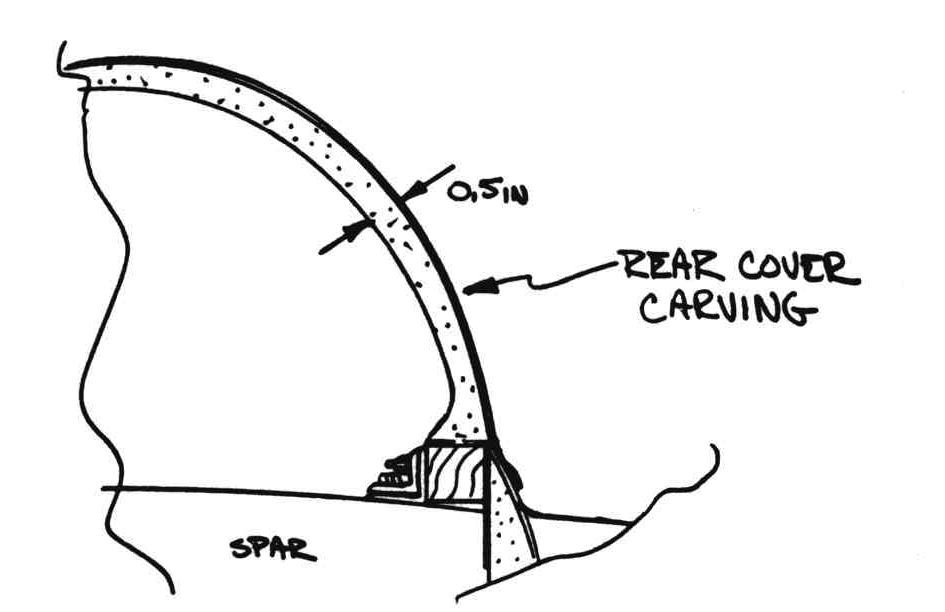 0.5 IN
REAR COVER
CARVING
SPAR